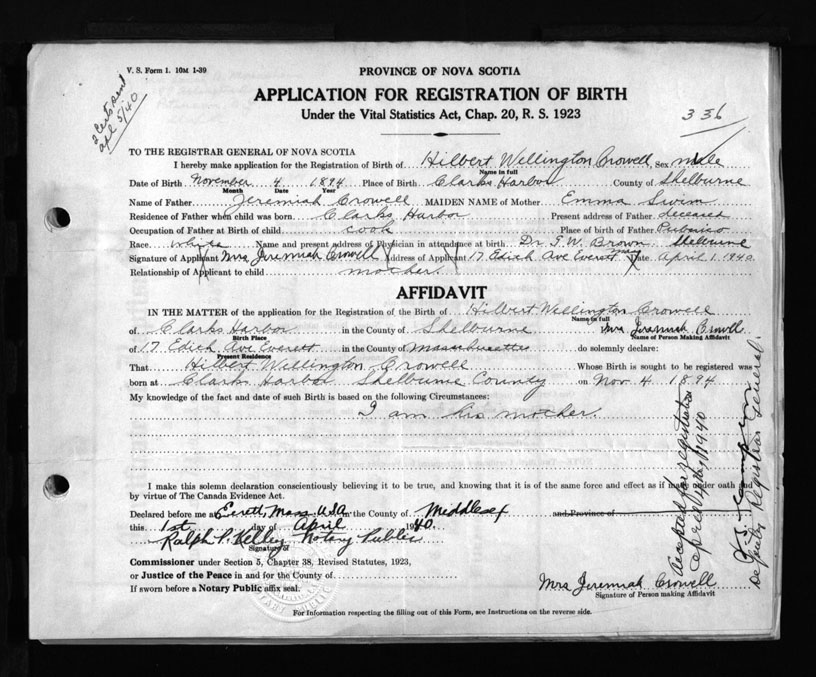 V. S. Form 1. 10M 1-39
2 Certs sent
apl 5/40
PROVINCE OF NOVA SCOTIA
APPLICATION FOR REGISTRATION OF BIRTH
Under the Vital Statistics Act, Chap. 20, R. S. 1923
336
TO THE REGISTRAR GENERAL OF NOVA SCOTIA
I hereby make application for the Registration of Birth of Hilbert Wellington Crowell, Sex male
Name in full
Date of Birth November 4 1894 Place of Birth Clarks Harbor County of Shelburne
Month Date Year
Name of Father Jeremiah Crowell MAIDEN NAME of Mother Emma Swim
Residence of Father when child was born Clarks Harbor Present address of Father deceased
Occupation of Father at Birth of child cook Place of birth of Father Pubnico
Race white Name and present address of Physician in attendance at birth Dr. T. W. Brown Shelburne
Signature of Applicant Mrs Jeremiah Crowell Address of Applicant 17 Edith Ave Everett Mass Date April 1. 1940
Relationship of Applicant to child mother.
AFFIDAVIT
IN THE MATTER of the application for the Registration of the Birth of Hilbert Wellington Crowell
Name in full
of Clarks Harbor in the County of Shelburne Mrs Jeremiah Crowell
Birth Place Name of Person Making Affidavit
of 17 Edith Ave Everett in the County of Massachusetts do solemnly declare:
Present Residence
That Hilbert Wellington Crowell Whose Birth is sought to be registered was
born at Clarks Harbor Shelburne County on Nov 4 1894
My knowledge of the fact and date of such Birth is based on the following Circumstances:
I am his mother.
I make this solemn declaration conscientiously believing it to be true, and knowing that it is of the same force and effect as if made under oath and
by virtue of The Canada Evidence Act.
Declared before me at Everett, Mass. USA in the County of Middlesex and Province of
this 1st day of April 1940.
Ralph P. Kelley Notary Public
Signature of
Commissioner under Section 5, Chapter 38, Revised Statutes, 1923,
or Justice of the Peace in and for the County of
If sworn before a Notary Public affix seal.
Mrs Jeremiah Crowell
Signature of Person making Affidavit
For Information respecting the filling out of this Form, see Instructions on the reverse side.
Accepted for registration
April 4th, 1940
Deputy Registrar General.